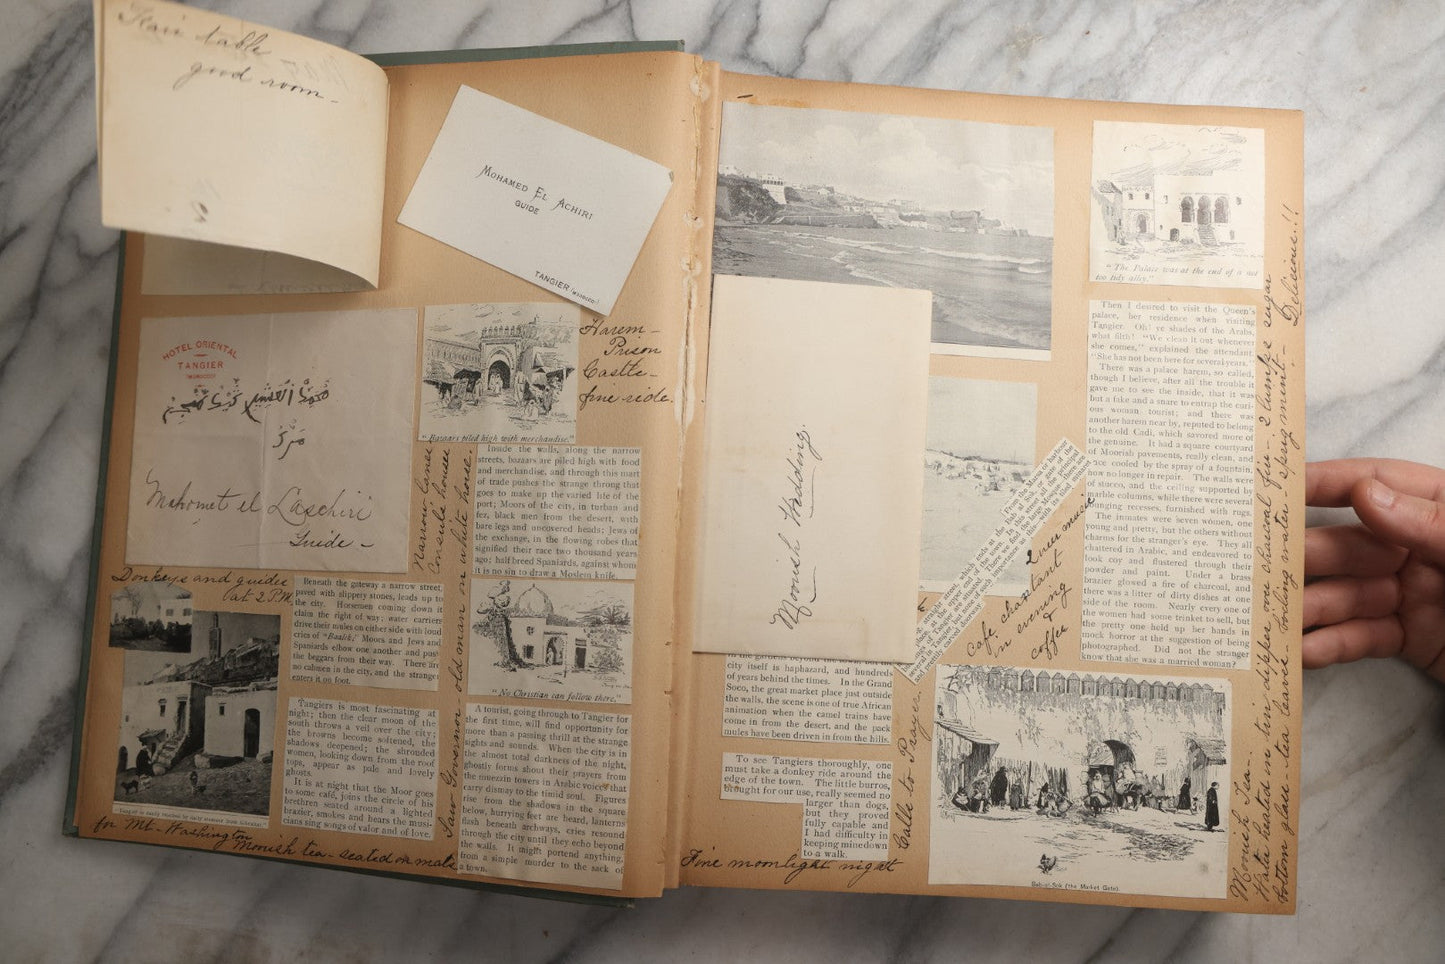 table
good room -
MOHAMED EL ACHIRI
GUIDE
TANGIER (MOROCCO)
HOTEL ORIENTAL
TANGIER
(MOROCCO)
Mahomet el L'aschiri
Guide -
Harem -
Prison
Castle -
fine ride.
"Bazaars piled high with merchandise."
Narrow lanes
Consuls houses
Saw Governor - old man on white horse.
Inside the walls, along the narrow
streets, bazaars are piled high with food
and merchandise, and through this mart
of trade pushes the strange throng that
goes to make up the varied life of the
port; Moors of the city, in turban and
fez, black men from the desert, with
bare legs and uncovered heads; Jews of
the exchange, in the flowing robes that
signified their race two thousand years
ago; half breed Spaniards, against whom
it is no sin to draw a Moslem knife.
Donkeys and guides
at 2 P.M.
Beneath the gateway a narrow street
paved with slippery stones, leads up to
the city. Horsemen coming down it
claim the right of way; water carriers
drive their mules on either side with loud
cries of "Baalek;" Moors and Jews and
Spaniards elbow one another and push
the beggars from their way. There are
no cabmen in the city, and the stranger
enters it on foot.
Tangiers is most fascinating at
night; then the clear moon of the
south throws a veil over the city;
the browns become softened, the
shadows deepened; the shrouded
women, looking down from the roof
tops, appear as pale and lovely
ghosts.
It is at night that the Moor goes
to some café, joins the circle of his
brethren seated around a lighted
brazier, smokes and hears the musi-
cians sing songs of valor and of love.
"No Christian can follow there."
A tourist, going through to Tangier for
the first time, will find opportunity for
more than a passing thrill at the strange
sights and sounds. When the city is in
the almost total darkness of the night,
ghostly forms shout their prayers from
the muezzin towers in Arabic voices that
carry dismay to the timid soul. Figures
rise from the shadows in the square
below, hurrying feet are heard, lanterns
flash beneath archways, cries resound
through the city until they echo beyond
the walls. It might portend anything,
from a simple murder to the sack of
a town.
Tangier is easily reached by daily steamers from Gibraltar.
for Mt. Washington
Moorish tea - seated on mats
Moorish Wedding.
"The Palace was at the end of a not
too tidy alley."
Then I desired to visit the Queen's
palace, her residence when visiting
Tangier. Oh! ye shades of the Arabs,
what filth! "We clean it out whenever
she comes," explained the attendant
"She has not been here for several years."
There was a palace harem, so called,
though I believe, after all the trouble it
gave me to see the inside, that it was
but a fake and a snare to entrap the curi-
ous woman tourist; and there was
another harem near by, reputed to belong
to the old Cadi, which savored more of
the genuine. It had a square courtyard
of Moorish pavements, really clean, and
once cooled by the spray of a fountain,
now no longer in repair. The walls were
of stucco, and the ceiling supported by
marble columns, while there were several
lounging recesses, furnished with rugs.
The inmates were seven women, one
young and pretty, but the others without
charms for the stranger's eye. They all
chattered in Arabic, and endeavored to
look coy and flustered through their
powder and paint. Under a brass
brazier glowed a fire of charcoal, and
there was a litter of dirty dishes at one
side of the room. Nearly every one of
the women had some trinket to sell, but
the pretty one held up her hands in
mock horror at the suggestion of being
photographed. Did not the stranger
know that she was a married woman?
2 queer music
cafe chantant
in evening
&
coffee
In the gardens beyond the
city itself is haphazard, and hundreds
of years behind the times. In the Grand
Soco, the great market place just outside
the walls, the scene is one of true African
animation when the camel trains have
come in from the desert, and the pack
mules have been driven in from the hills.
To see Tangiers thoroughly, one
must take a donkey ride around the
edge of the town. The little burros,
brought for our use, really seemed no
larger than dogs,
but they proved
fully capable and
I had difficulty in
keeping mine down
to a walk.
Calls to Prayer.
Fine moonlight night
Bab-el-Sok (the Market Gate).
Moorish Tea -
Water heated in tin dipper over charcoal fire - 2 lumps sugar
bottom glass - tea leaves - boiling water - sprig mint - Delicious!!